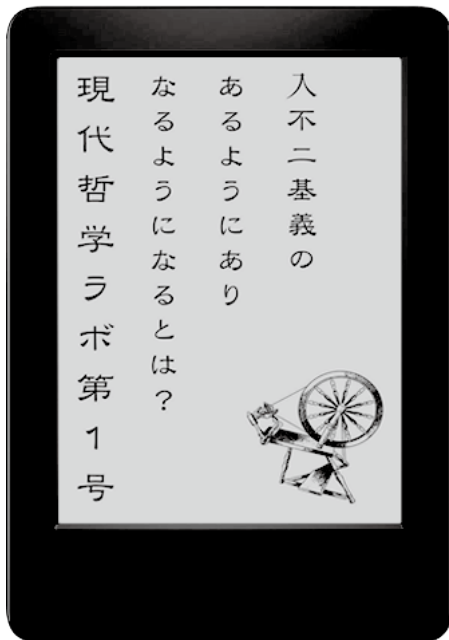 入不二基義の
あるようにあり
なるようになるとは？
現代哲学ラボ第1号